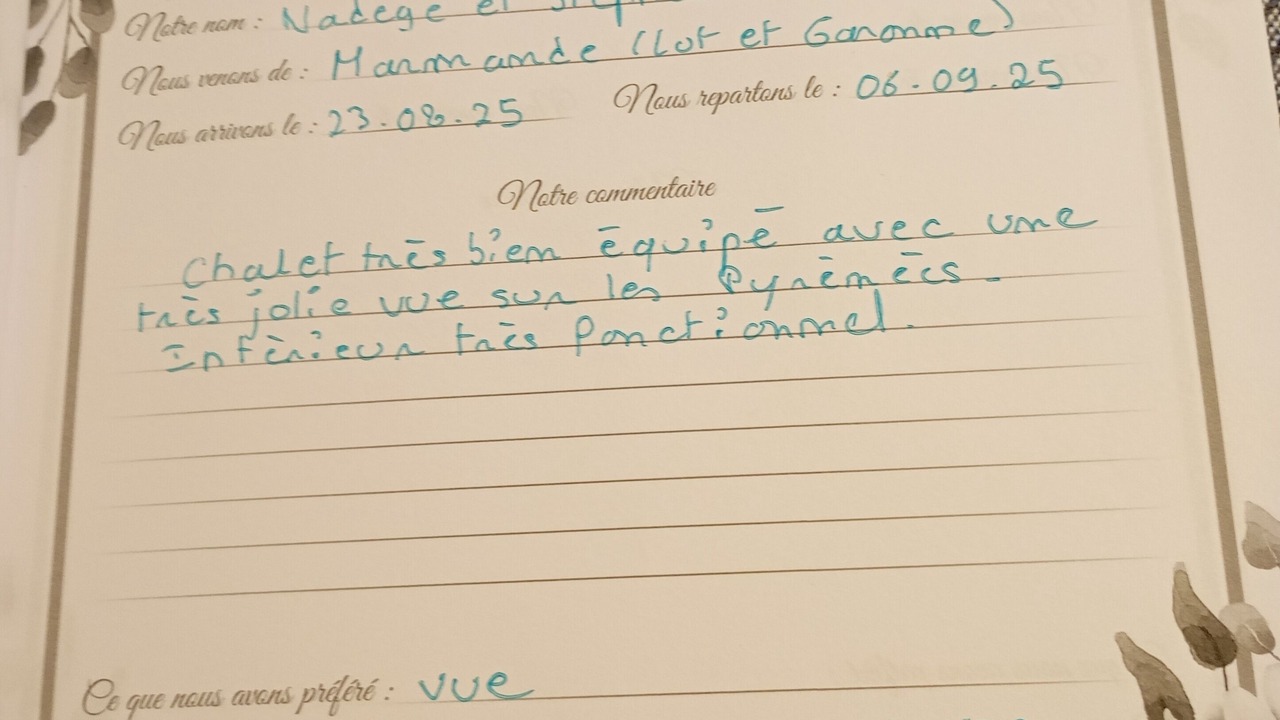 Notre nom : Nadege et
Nous venons de : Marmande (Lot et Garonne)
Nous arrivons le : 23.08.25 Nous repartons le : 06.09.25
Notre commentaire
Chalet très bien équipé avec une
très jolie vue sur les Pyrénées.
Intérieur très fonctionnel.
Ce que nous avons préféré : vue